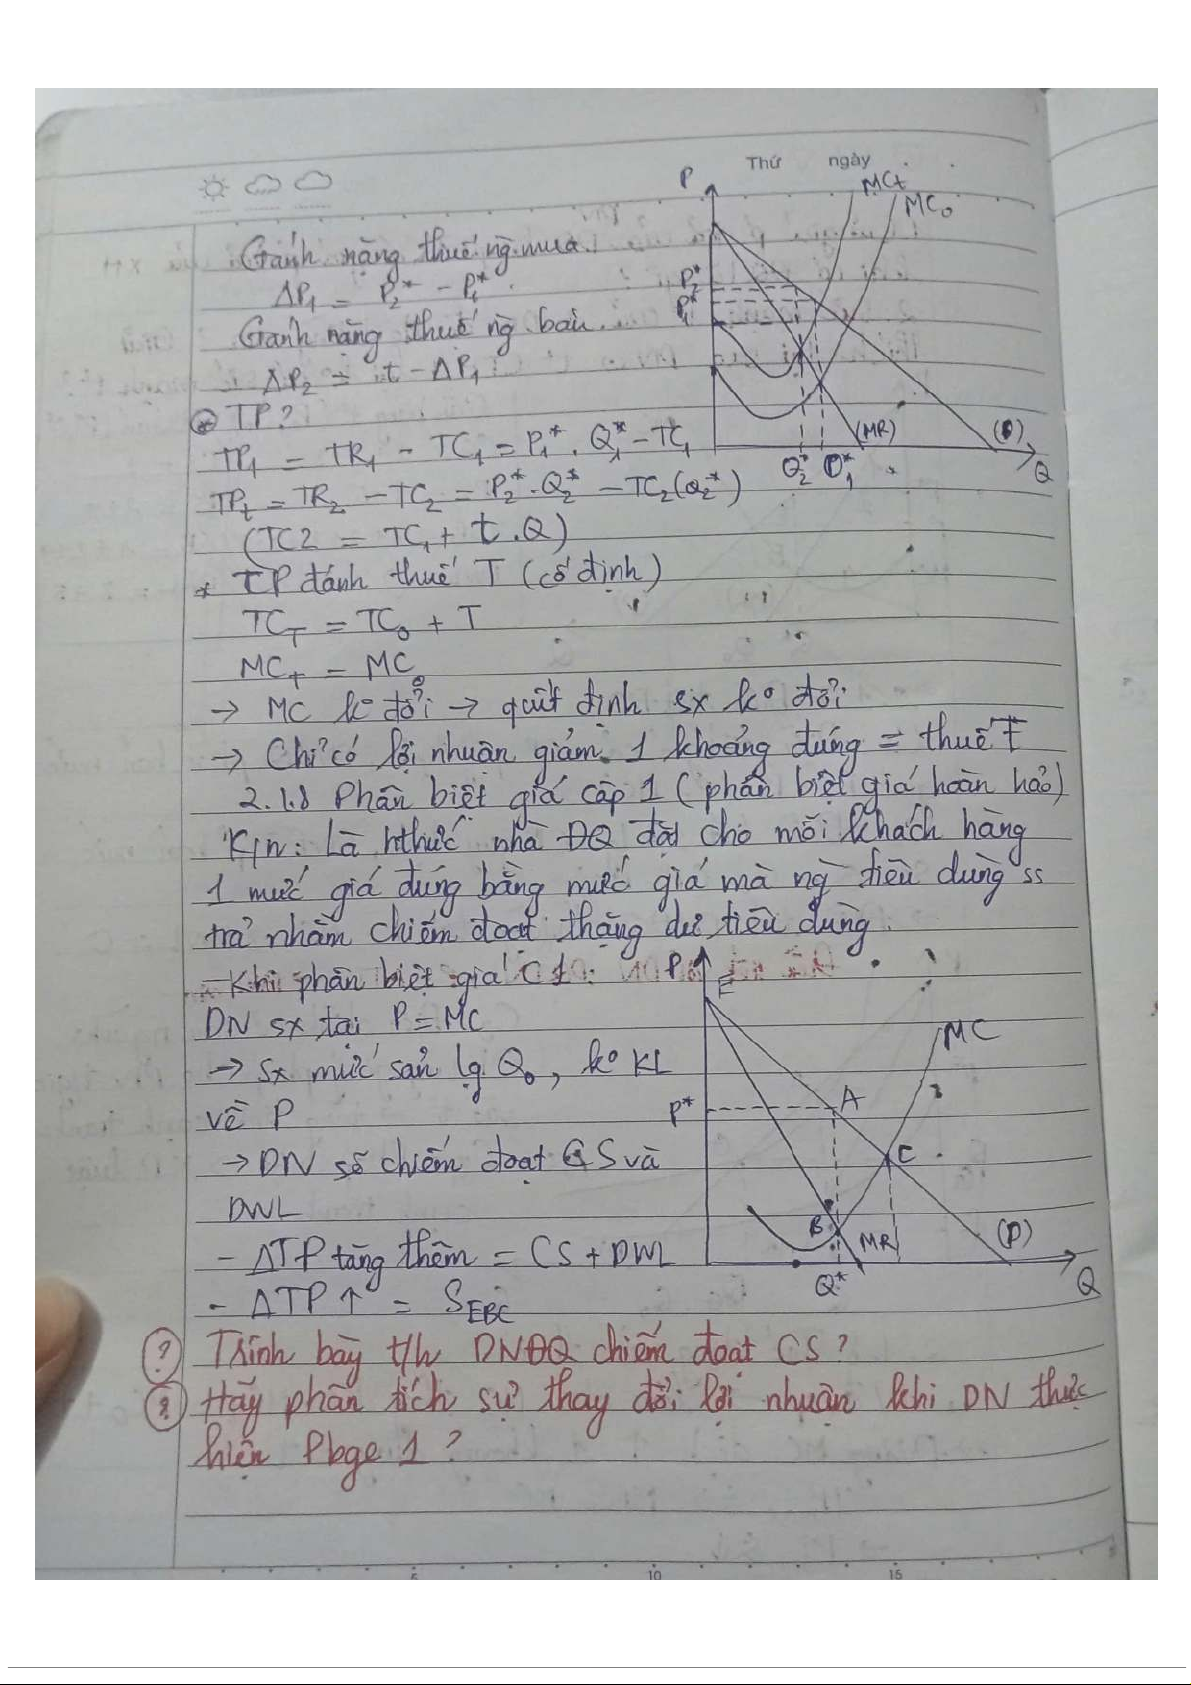 Thứ ngày
P
MCt
MC₀
Gánh nặng thuế ng mua.
ΔP₁ = P₂* - P₁*
P₂*
P₁*
Gánh nặng thuế ng bán.
ΔP₂ = t - ΔP₁
⊛ TP?
(MR)
(D)
Q₂* Q₁*
Q
TP₁ = TR₁ - TC₁ = P₁*. Q₁* - TC₁
TPt = TR₂ - TC₂ = P₂*.Q₂* - TC₂(Q₂*)
(TC2 = TC₁ + t.Q)
* CP đánh thuế T (cố định)
TC_T = TC₀ + T
MC_T = MC₀
→ MC k° đổi → quết định sx k° đổi
→ Chỉ có lợi nhuận giảm 1 khoảng đúng = thuế T
2.1.8 Phân biệt giá cấp 1 (phân biệt giá hoàn hảo)
K/n: Là hthức nhà ĐQ đặt cho mỗi khách hàng
1 mức giá đúng bằng mức giá mà ng tiêu dùng ss
trả nhằm chiếm đoạt thặng dư tiêu dùng.
- Khi phân biệt giá C1:
P
E
DN sx tại P = MC
MC
→ sx mức sản lg Q₀, k° KL
về P
P*
A
→ DN sẽ chiếm đoạt CS và
C
DWL
B
MR
(D)
- ΔTP tăng thêm = CS + DWL
Q*
Q
- ΔTP↑ = S_EBC
? Trình bày t/h DNĐQ chiếm đoạt CS?
? Hãy phân tích sự thay đổi lợi nhuận khi DN thực
hiện Pbge 1?
5 10 15